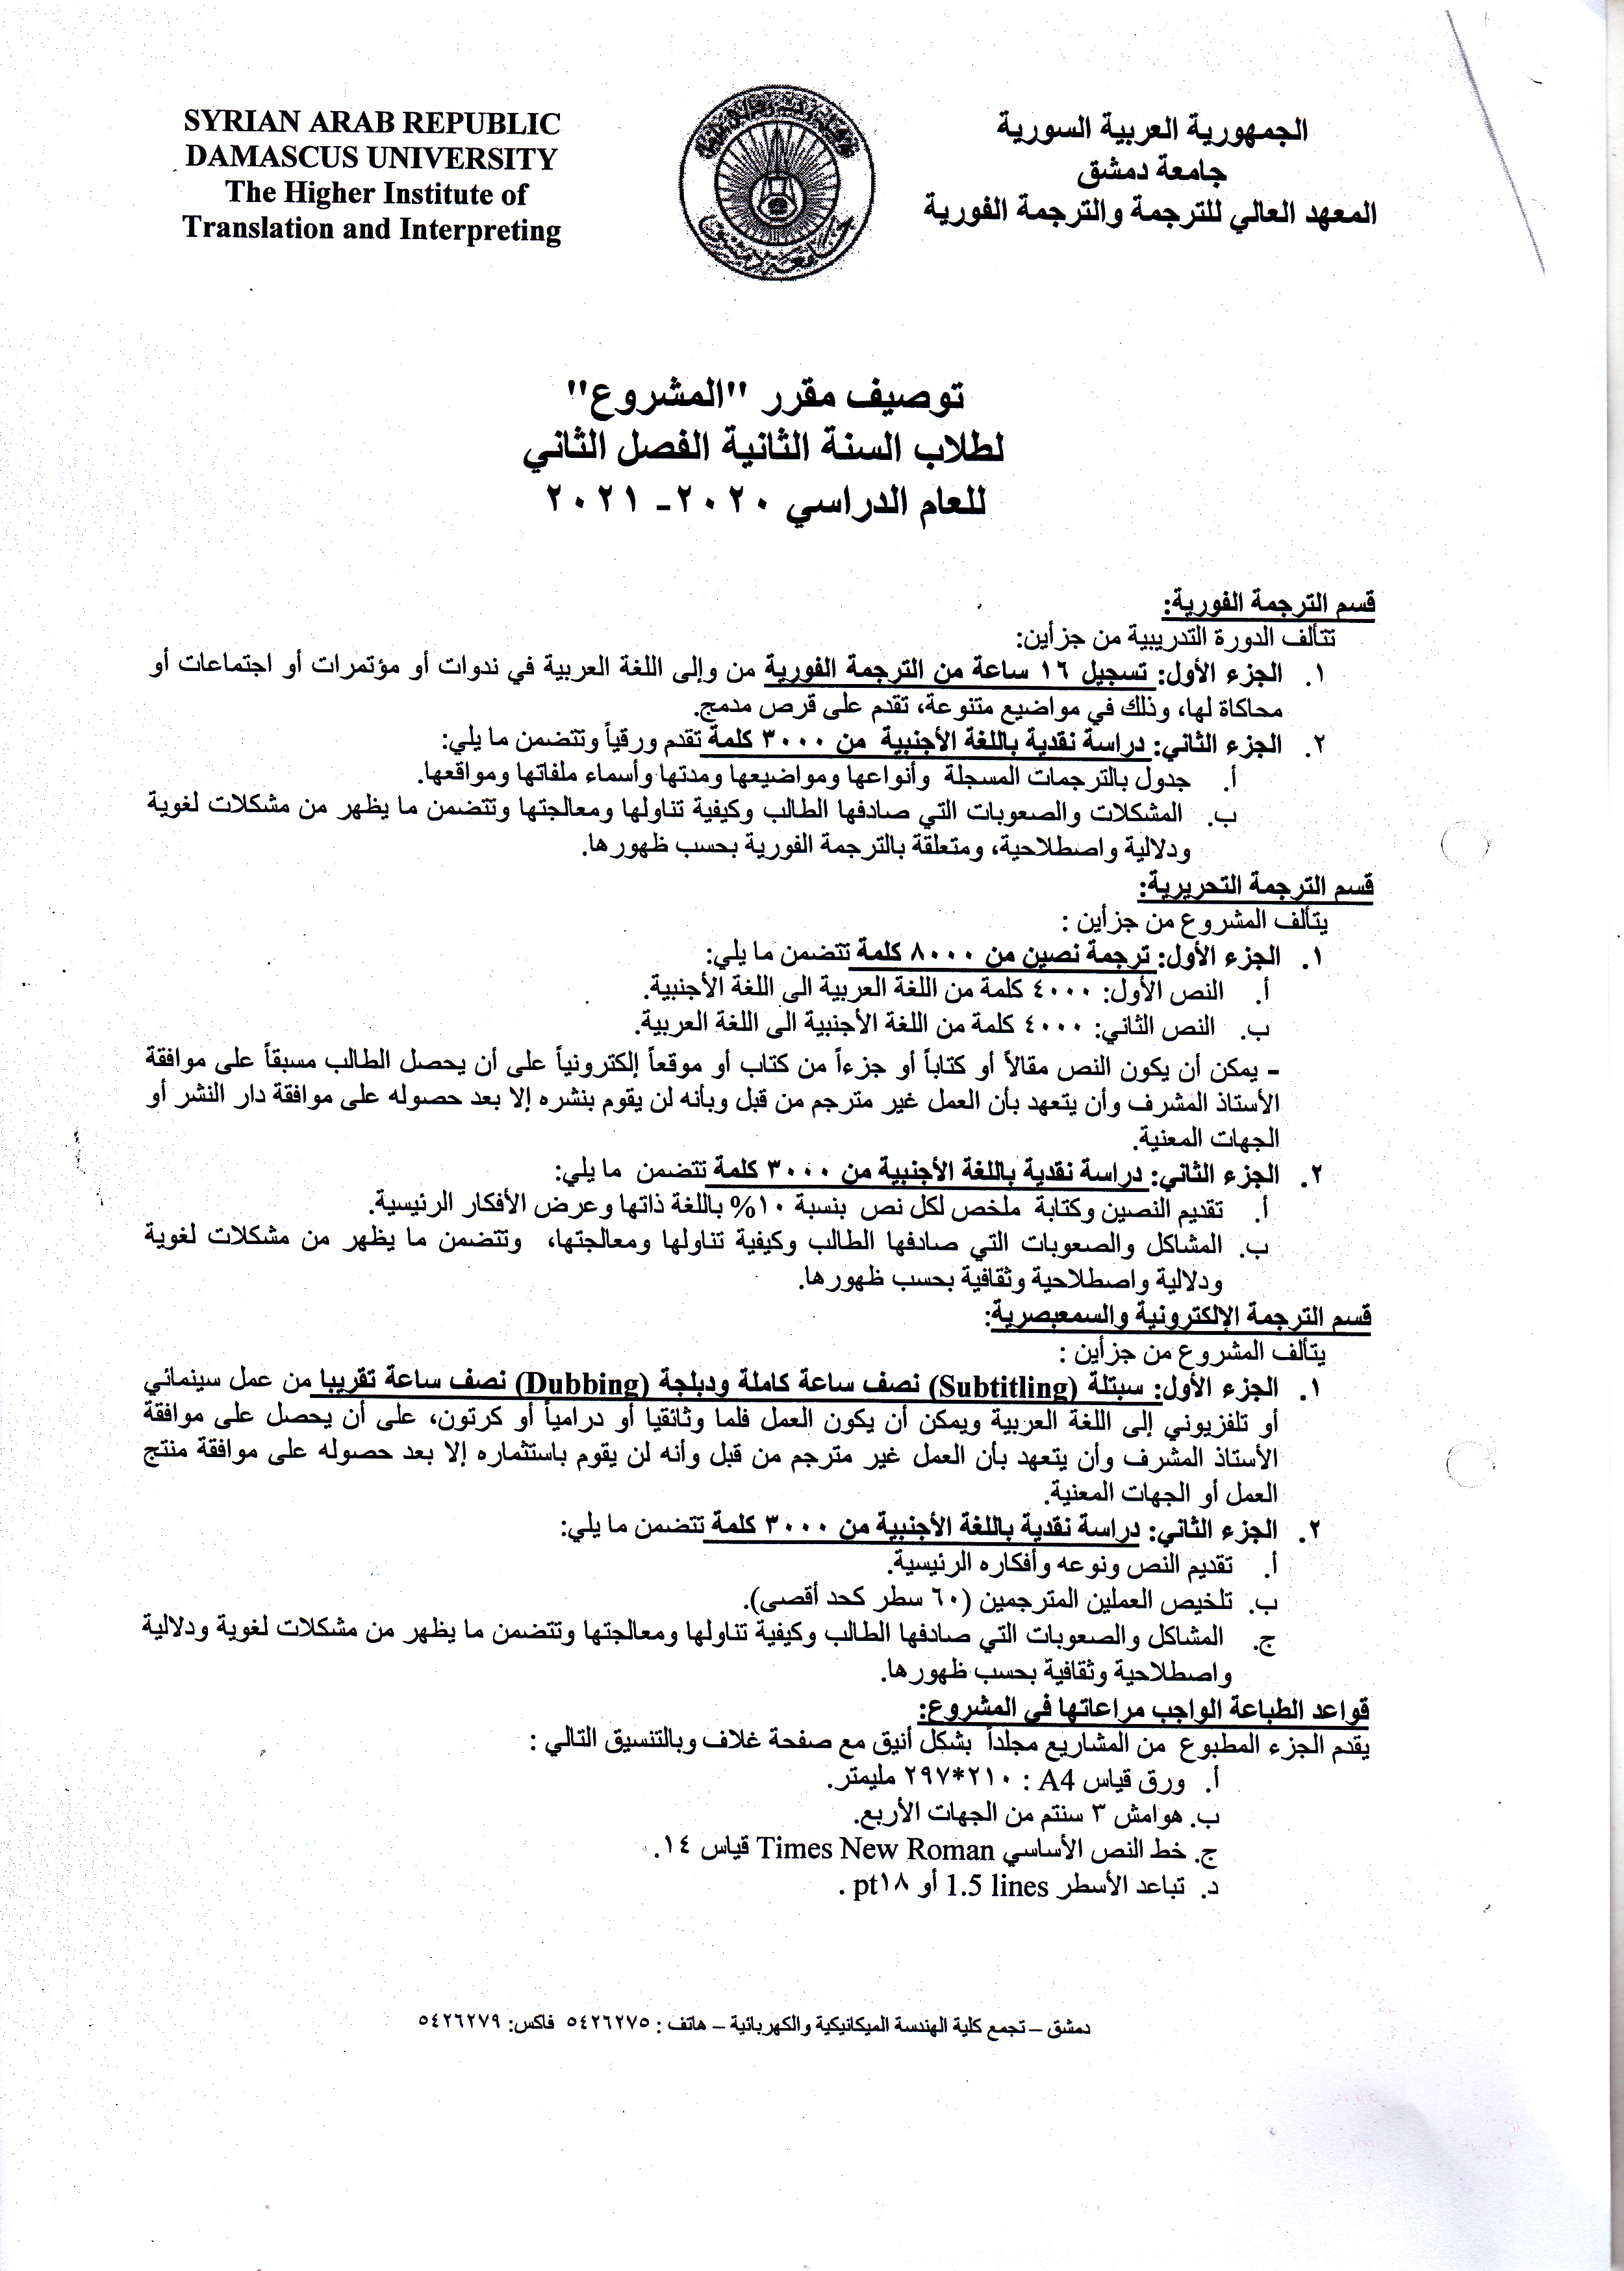 SYRIAN ARAB REPUBLIC
DAMASCUS UNIVERSITY
The Higher Institute of
Translation and Interpreting
الجمهورية العربية السورية
جامعة دمشق
المعهد العالي للترجمة والترجمة الفورية
جامعة دمشق
توصيف مقرر "المشروع"
لطلاب السنة الثانية الفصل الثاني
للعام الدراسي ٢٠٢٠- ٢٠٢١
قسم الترجمة الفورية:
تتألف الدورة التدريبية من جزأين:
١. الجزء الأول: تسجيل ١٦ ساعة من الترجمة الفورية من وإلى اللغة العربية في ندوات أو مؤتمرات أو اجتماعات أو
محاكاة لها، وذلك في مواضيع متنوعة، تقدم على قرص مدمج.
٢. الجزء الثاني: دراسة نقدية باللغة الأجنبية من ٣٠٠٠ كلمة تقدم ورقياً وتتضمن ما يلي:
أ. جدول بالترجمات المسجلة وأنواعها ومواضيعها ومدتها وأسماء ملفاتها ومواقعها.
ب. المشكلات والصعوبات التي صادفها الطالب وكيفية تناولها ومعالجتها وتتضمن ما يظهر من مشكلات لغوية
ودلالية واصطلاحية، ومتعلقة بالترجمة الفورية بحسب ظهورها.
قسم الترجمة التحريرية:
يتألف المشروع من جزأين :
١. الجزء الأول: ترجمة نصين من ٨٠٠٠ كلمة تتضمن ما يلي:
أ. النص الأول: ٤٠٠٠ كلمة من اللغة العربية الى اللغة الأجنبية.
ب. النص الثاني: ٤٠٠٠ كلمة من اللغة الأجنبية الى اللغة العربية.
– يمكن أن يكون النص مقالاً أو كتاباً أو جزءاً من كتاب أو موقعاً إلكترونياً على أن يحصل الطالب مسبقاً على موافقة
الأستاذ المشرف وأن يتعهد بأن العمل غير مترجم من قبل وبأنه لن يقوم بنشره إلا بعد حصوله على موافقة دار النشر أو
الجهات المعنية.
٢. الجزء الثاني: دراسة نقدية باللغة الأجنبية من ٣٠٠٠ كلمة تتضمن ما يلي:
أ. تقديم النصين وكتابة ملخص لكل نص بنسبة ١٠% باللغة ذاتها وعرض الأفكار الرئيسية.
ب. المشاكل والصعوبات التي صادفها الطالب وكيفية تناولها ومعالجتها، وتتضمن ما يظهر من مشكلات لغوية
ودلالية واصطلاحية وثقافية بحسب ظهورها.
قسم الترجمة الإلكترونية والسمعبصرية:
يتألف المشروع من جزأين :
١. الجزء الأول: سبتلة (Subtitling) نصف ساعة كاملة ودبلجة (Dubbing) نصف ساعة تقريبا من عمل سينمائي
أو تلفزيوني إلى اللغة العربية ويمكن أن يكون العمل فلما وثائقيا أو درامياً أو كرتون، على أن يحصل على موافقة
الأستاذ المشرف وأن يتعهد بأن العمل غير مترجم من قبل وأنه لن يقوم باستثماره إلا بعد حصوله على موافقة منتج
العمل أو الجهات المعنية.
٢. الجزء الثاني: دراسة نقدية باللغة الأجنبية من ٣٠٠٠ كلمة تتضمن ما يلي:
أ. تقديم النص ونوعه وأفكاره الرئيسية.
ب. تلخيص العملين المترجمين (٦٠ سطر كحد أقصى).
ج. المشاكل والصعوبات التي صادفها الطالب وكيفية تناولها ومعالجتها وتتضمن ما يظهر من مشكلات لغوية ودلالية
واصطلاحية وثقافية بحسب ظهورها.
قواعد الطباعة الواجب مراعاتها في المشروع:
يقدم الجزء المطبوع من المشاريع مجلداً بشكل أنيق مع صفحة غلاف وبالتنسيق التالي :
أ. ورق قياس A4 : ٢١٠*٢٩٧ مليمتر.
ب. هوامش ٣ سنتم من الجهات الأربع.
ج. خط النص الأساسي Times New Roman قياس ١٤.
د. تباعد الأسطر 1.5 lines أو pt١٨ .
دمشق – تجمع كلية الهندسة الميكانيكية والكهربائية – هاتف : ٥٤٢٦٢٧٥ فاكس: ٥٤٢٦٢٧٩